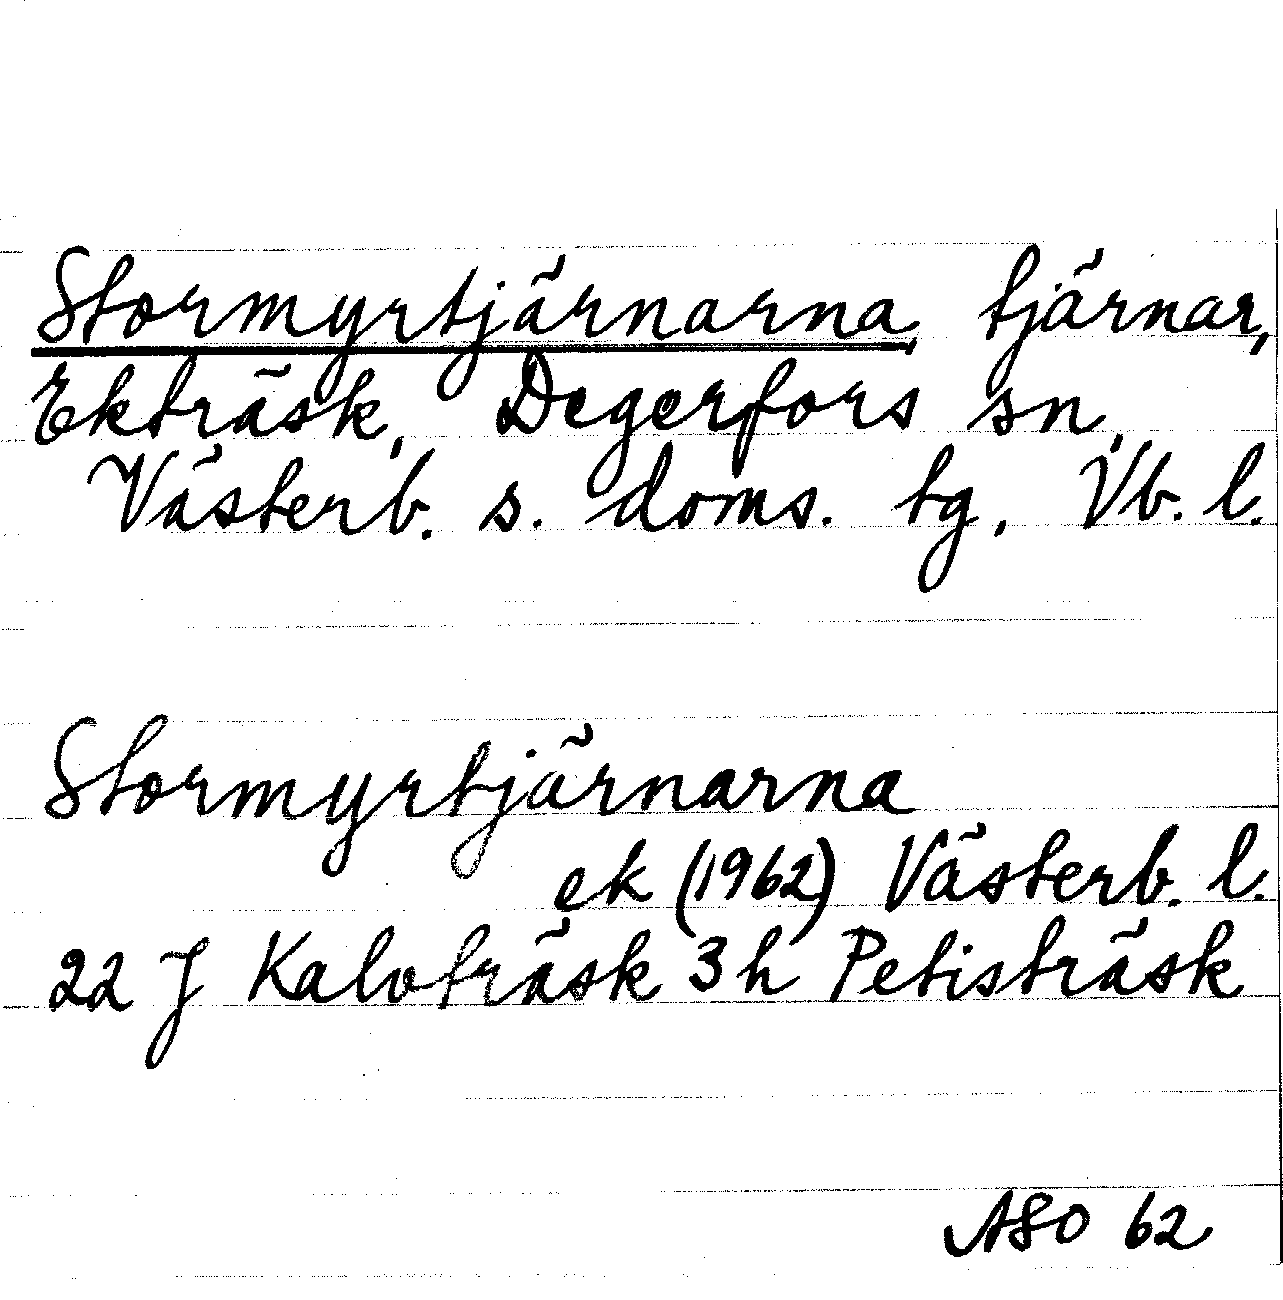 Stormyrtjärnarna, tjärnar,
Ekträsk, Degerfors sn,
Västerb. s. doms. tg, Vb. l.
Stormyrtjärnarna
ek (1962) Västerb. l.
22 J Kalvträsk 3 h Petisträsk
ASO 62